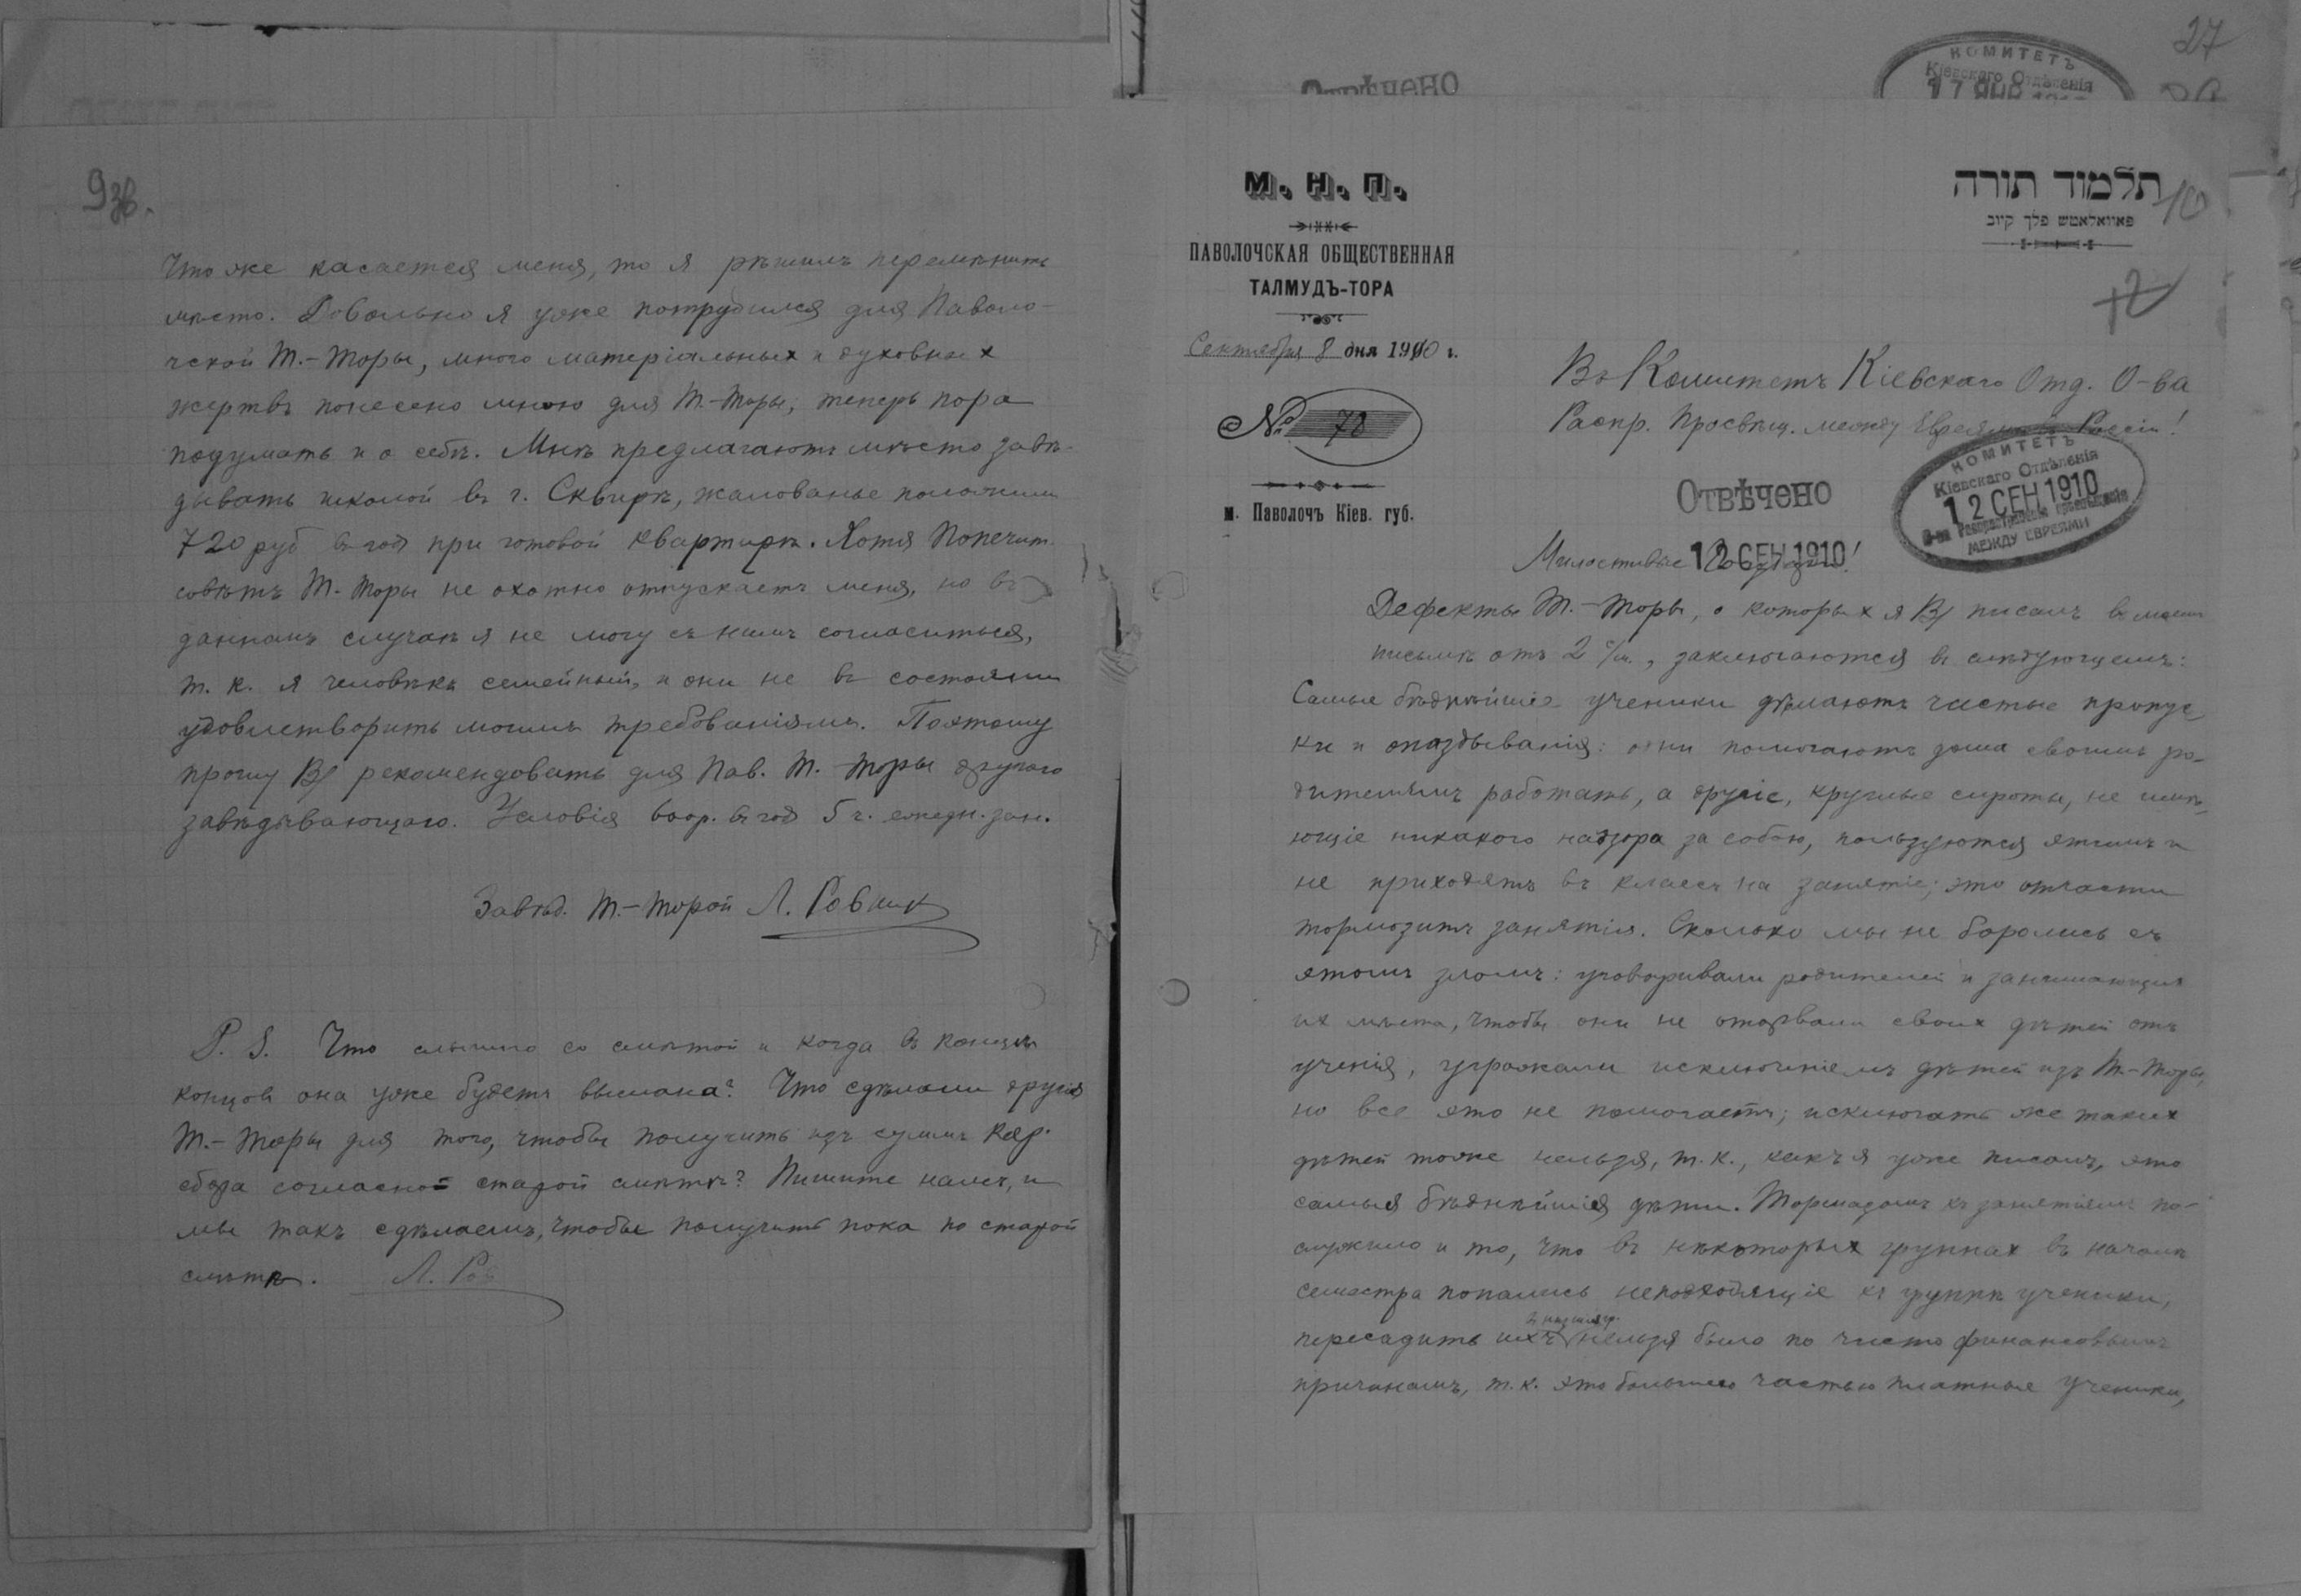 9 зв.
Что же касается меня, то я рѣшилъ перемѣнить
мѣсто. Довольно я уже потрудился для Паволо-
чской Т.-Торы, много матеріальныхъ и духовныхъ
жертвъ понесено мною для Т.-Торы, теперь пора
подумать и о себѣ. Мнѣ предлагаютъ мѣсто завѣ-
дывать школой въ г. Сквирѣ, жалованье положили
720 руб въ годъ при готовой квартирѣ. Хотя Попечит.
совѣтъ Т.-Торы не охотно отпускаетъ меня, но въ
данномъ случаѣ я не могу съ нимъ согласиться,
т. к. я человѣкъ семейный, и они не въ состояніи
удовлетворить моимъ требованіямъ. Поэтому
прошу Вз рекомендовать для Пав. Т.-Торы другого
завѣдывающаго. Условія 600 р. въ годъ 5 ч. ежедн. зан.
Завѣд. Т.-Торой Л. Ровник
P. S. Что слышно со смѣтой и когда въ концѣ
концовъ она уже будетъ выслана? Что сдѣлали другія
Т.-Торы для того, чтобы получить изъ суммъ Кор.
сбора согласно старой смѣтѣ? Пишите намъ, и
мы такъ сдѣлаемъ, чтобы получить пока по старой
смѣтѣ. Л. Ров
27
Отвѣчено
КОМИТЕТЪ
Кіевскаго Отдѣленія
17 ЯНВ
М. Н. П.
ПАВОЛОЧСКАЯ ОБЩЕСТВЕННАЯ
ТАЛМУДЪ-ТОРА
Сентября 8 дня 1910 г.
№ 78
м. Паволочъ Кіев. губ.
תלמוד תורה
פאוואלאטש פלך קיוב
10
Въ Комитетъ Кіевскаго Отд. О-ва
Распр. Просвѣщ. между Евреями въ Россіи!
КОМИТЕТЪ
Кіевскаго Отдѣленія
12 СЕН 1910
О-ва Распространенія Просвѣщенія
МЕЖДУ ЕВРЕЯМИ
Отвѣчено
12 СЕН 1910
Милостивые !
Дефекты Т.-Торы, о которыхъ я Вз писалъ въ моемъ
письмѣ отъ 2 с/м., заключаются въ слѣдующемъ:
Самые бѣднѣйшіе ученики дѣлаютъ частые пропус-
ки и опаздыванія: одни помогаютъ дома своимъ ро-
дителямъ работать, а другіе, круглые сироты, не имѣ-
ющіе никакого надзора за собою, пользуются этимъ и
не приходятъ въ классъ на занятіе; это отчасти
тормозитъ занятія. Сколько мы не боролись съ
этомъ зломъ: уговаривали родителей и занимающихъ
ихъ мѣста, чтобы они не оторвали своихъ дѣтей отъ
ученія, угрожали исключеніемъ дѣтей изъ Т.-Торы,
но все это не помогаетъ; исключать же такихъ
дѣтей тоже нельзя, т. к., какъ я уже писалъ, это
самыя бѣднѣйшія дѣти. Тормазомъ къ занятіямъ по-
служило и то, что въ нѣкоторыхъ группахъ въ началѣ
семестра попались неподходящіе къ группѣ ученики,
пересадить ихъ нельзя было по чисто финансовымъ
причинамъ, т. к. это большею частью платные ученики,